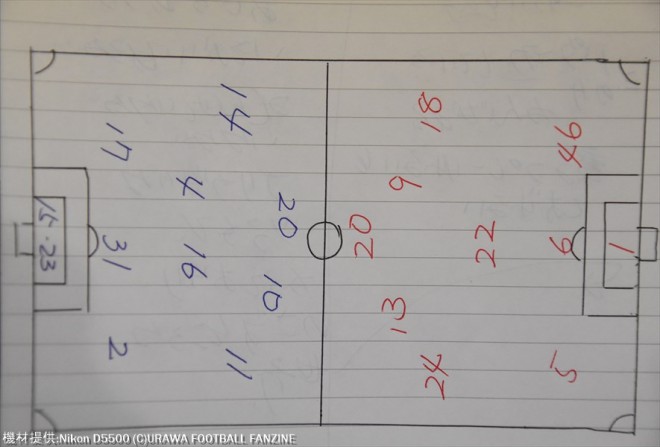 14
17
4
20
15.23
31
16
10
2
11
18
46
9
20
22
6
1
13
24
5
機材提供:Nikon D5500 (C)URAWA FOOTBALL FANZINE